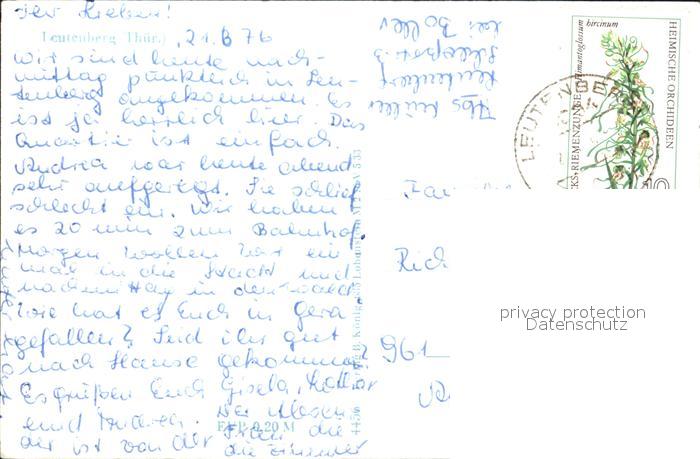 Ihr Lieben!
Leutenberg Thür. 21.6 76
wir sind heute nach-
mittag pünktlich in Leu-
tenberg angekommen. Es
ist ja herrlich hier. Das
Quartier ist einfach.
Andrea war heute abend
sehr aufgeregt. Sie schlief
schlecht ein. Wir haben
es 20 min zum Bahnhof.
Morgen wollen wir ein
mal in die Stadt und
nachmittag in den Wald
Wie hat es Euch in Gera
gefallen? Seid ihr gut
nach Hause gekommen?
Es grüßen Euch Gisela, Lothar
und Andrea.
EVP 0,20 M
der ist von der Frau die
die Zimmer
Abs Müller
Leutenberg
bei
HEIMISCHE ORCHIDEEN
RIEMENZUNGE Himantoglossum hircinum
LEUTENBERG
Rich
961
privacy protection
Datenschutz